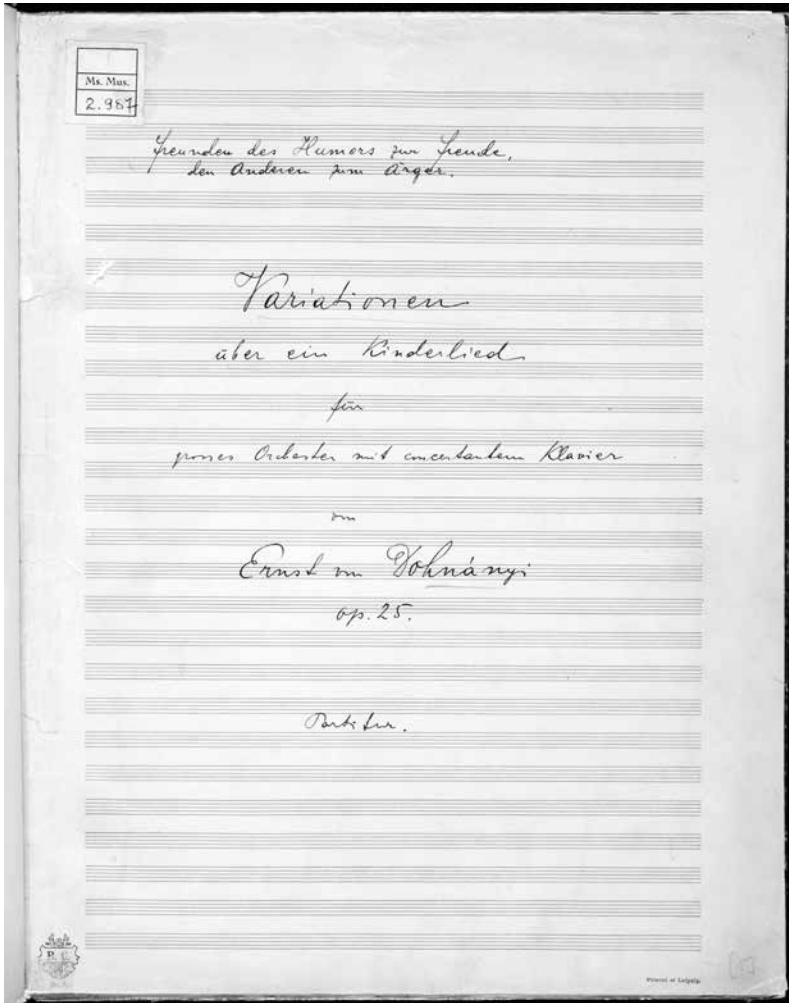 Ms. Mus.
2.987
Freunden des Humors zur Freude,
den Anderen zum Ärger.
Variationen
über ein Kinderlied
für
grosses Orchester mit concertantem Klavier
von
Ernst von Dohnányi
op. 25.
Partitur.
P. C.
Printed at Leipzig.